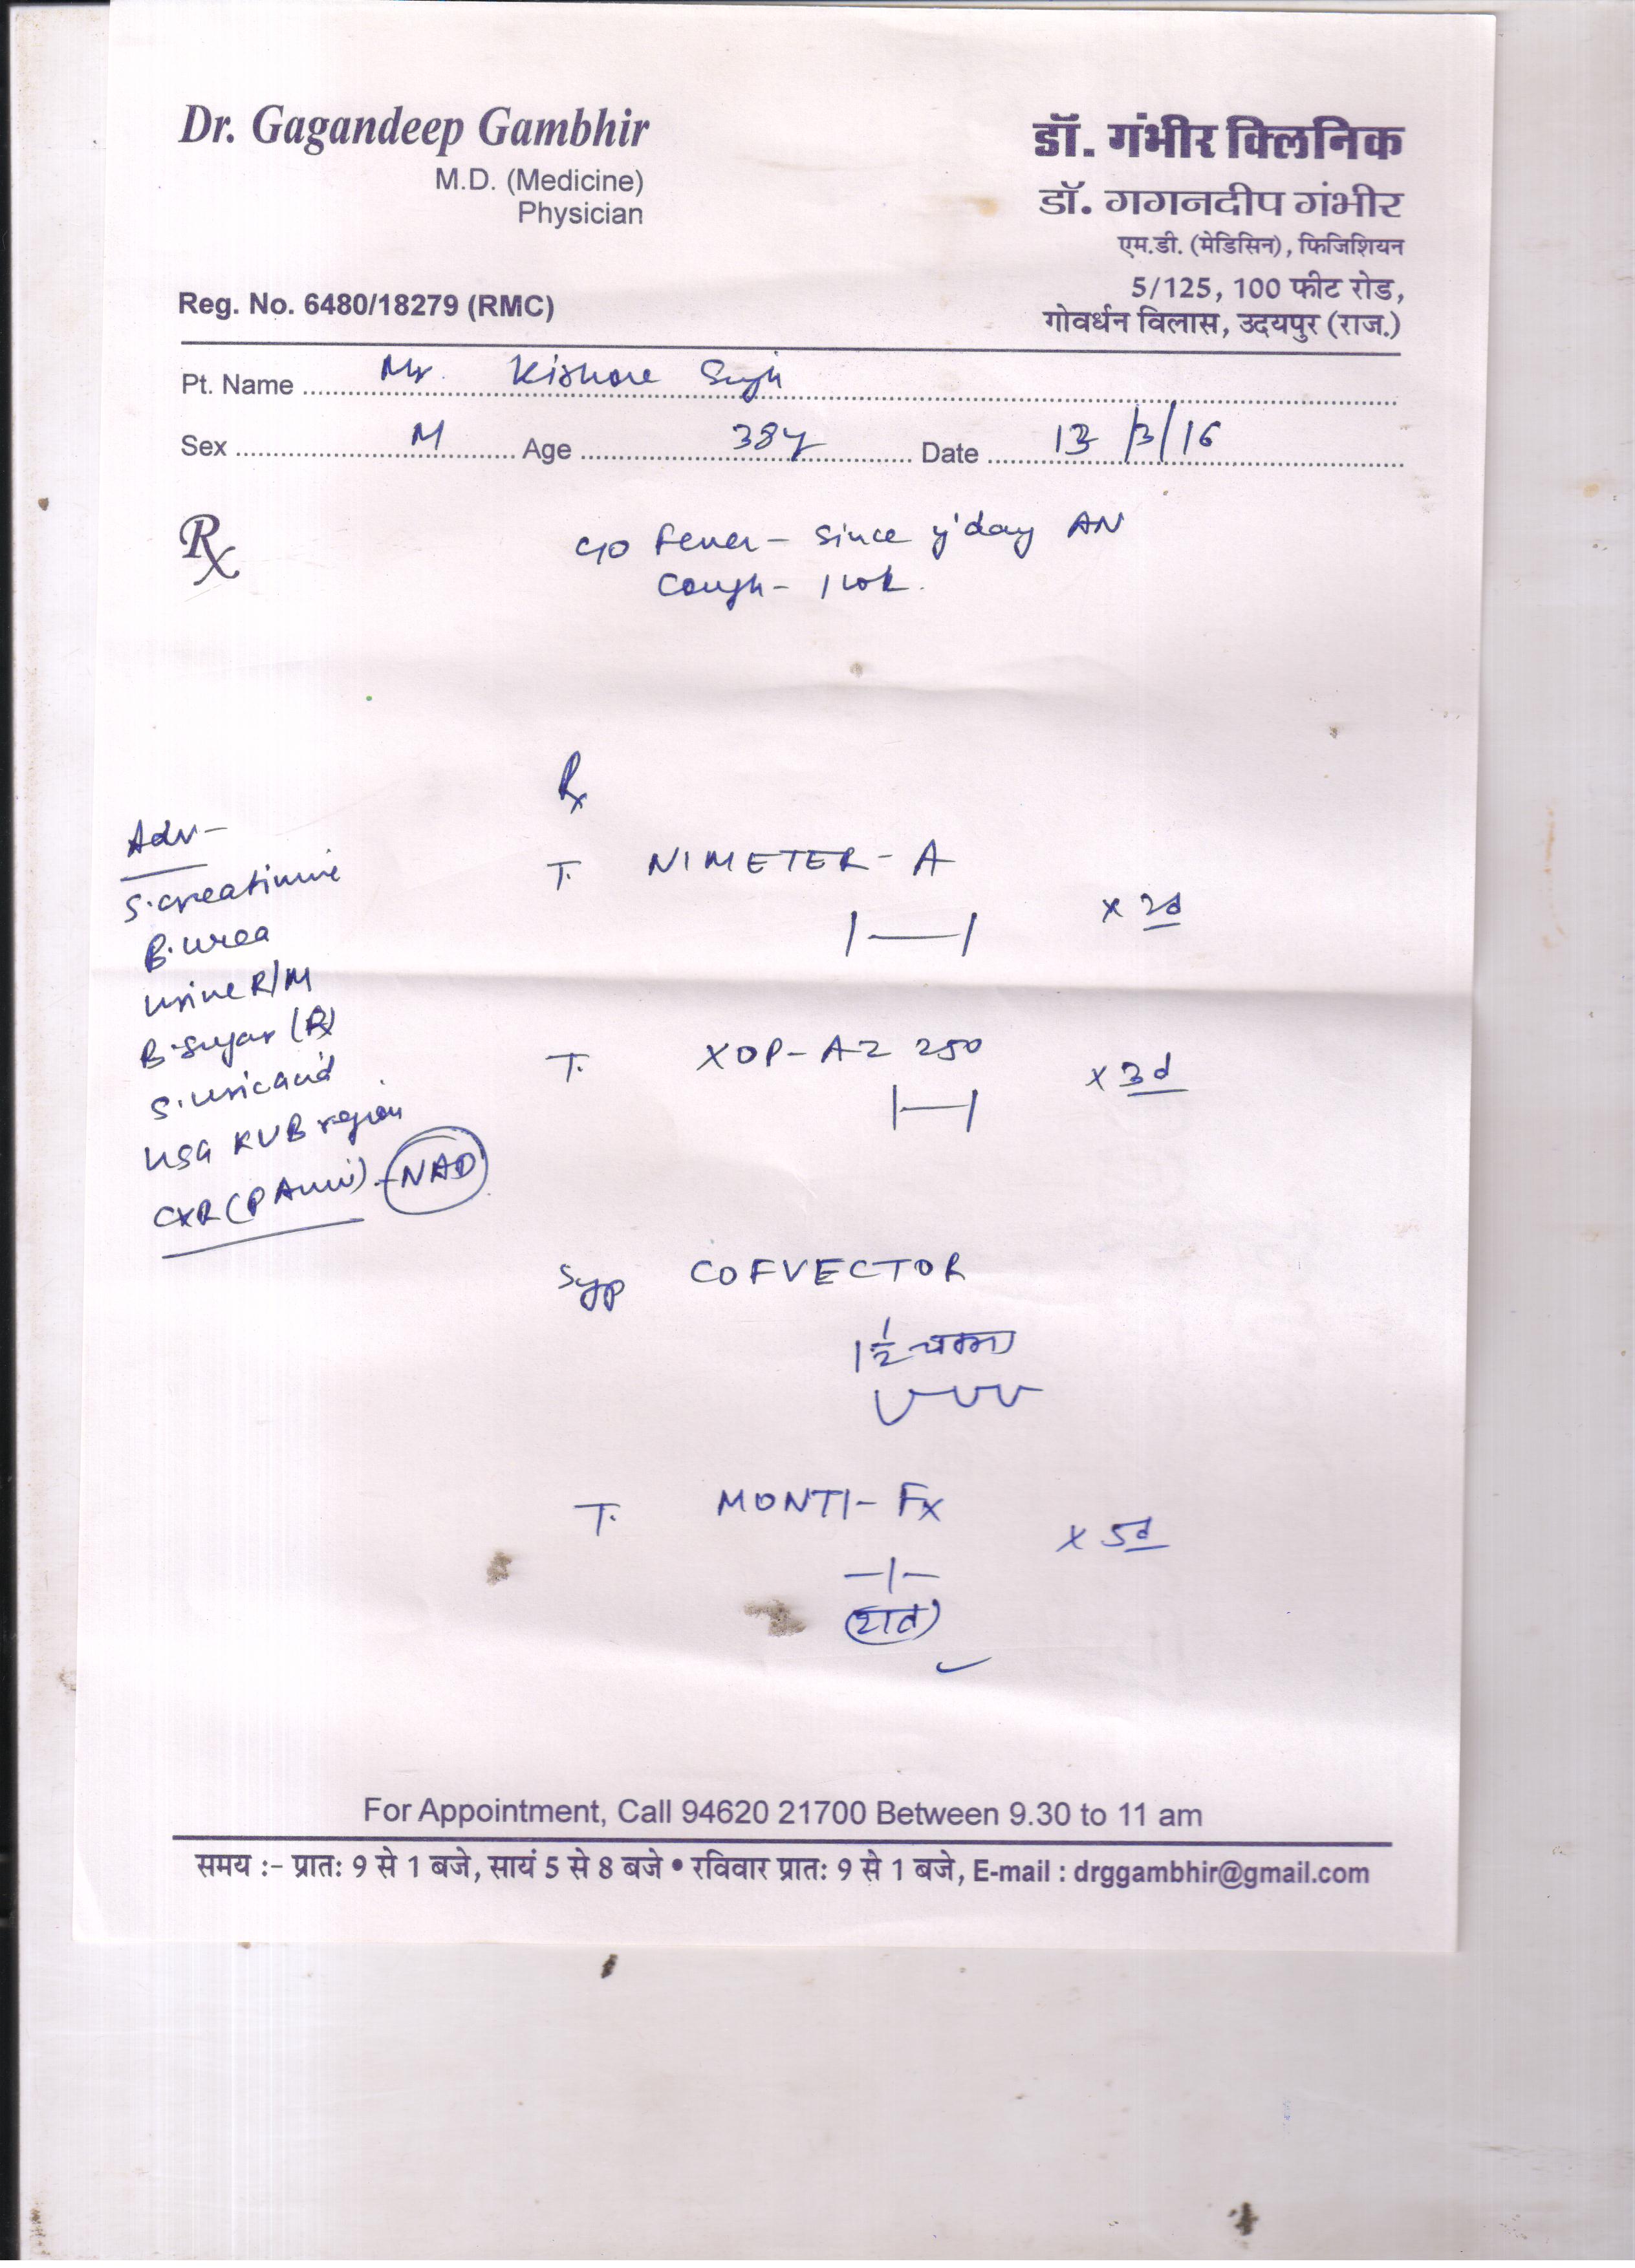 Dr. Gagandeep Gambhir
M.D. (Medicine)
Physician
Reg. No. 6480/18279 (RMC)
डॉ. गंभीर क्लिनिक
डॉ. गगनदीप गंभीर
एम.डी. (मेडिसिन), फिजिशियन
5/125, 100 फीट रोड,
गोवर्धन विलास, उदयपुर (राज.)
Pt. Name Mr. Kishore Singh
Sex M Age 38y Date 13/3/16
Rx
c/o Fever - since y'day AN
Cough - 1 wk.
Adv-
S. creatinine
B. urea
urine R/M
B. sugar (R)
S. uric acid
USG KUB region
CXR (PA view) - NAD
Rx
T. NIMETER-A
|—| x 2d
T. XOP-AZ 250
|—| x 3d
Syp COFVECTOR
1 1/2 चम्मच
T. MONTI-Fx
—|— x 5d
(रात)
For Appointment, Call 94620 21700 Between 9.30 to 11 am
समय :- प्रातः 9 से 1 बजे, सायं 5 से 8 बजे • रविवार प्रातः 9 से 1 बजे, E-mail : drggambhir@gmail.com